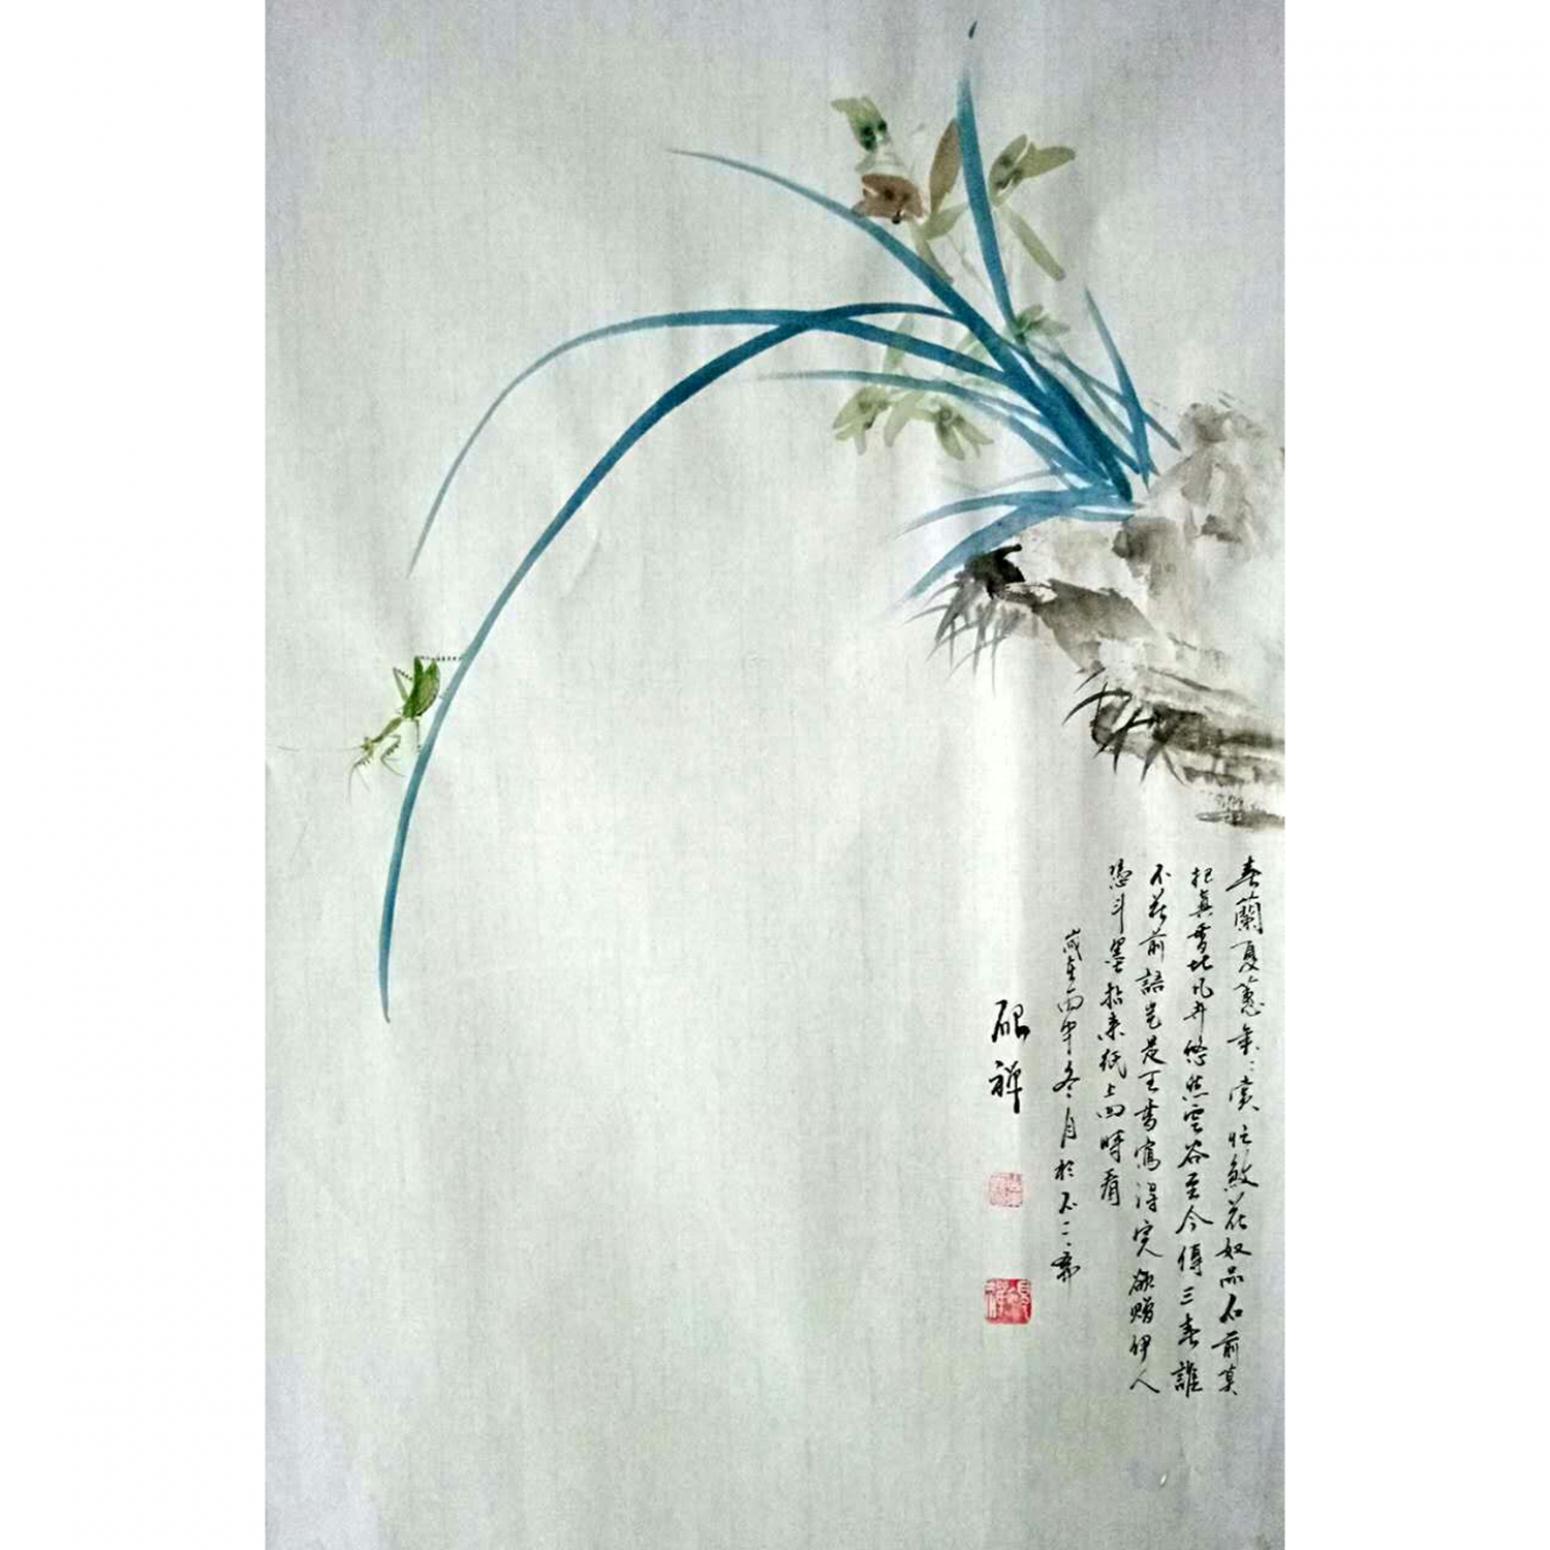 春蘭夏蕙年年賞忙煞花奴品石前莫
把真香比凡卉悠然雲谷至今傳三春誰
不花前語豈是丹青寫得完欲贈伊人
憑斗墨拈來紙上四時看
歲在丙午冬月於不二齋
硯禅